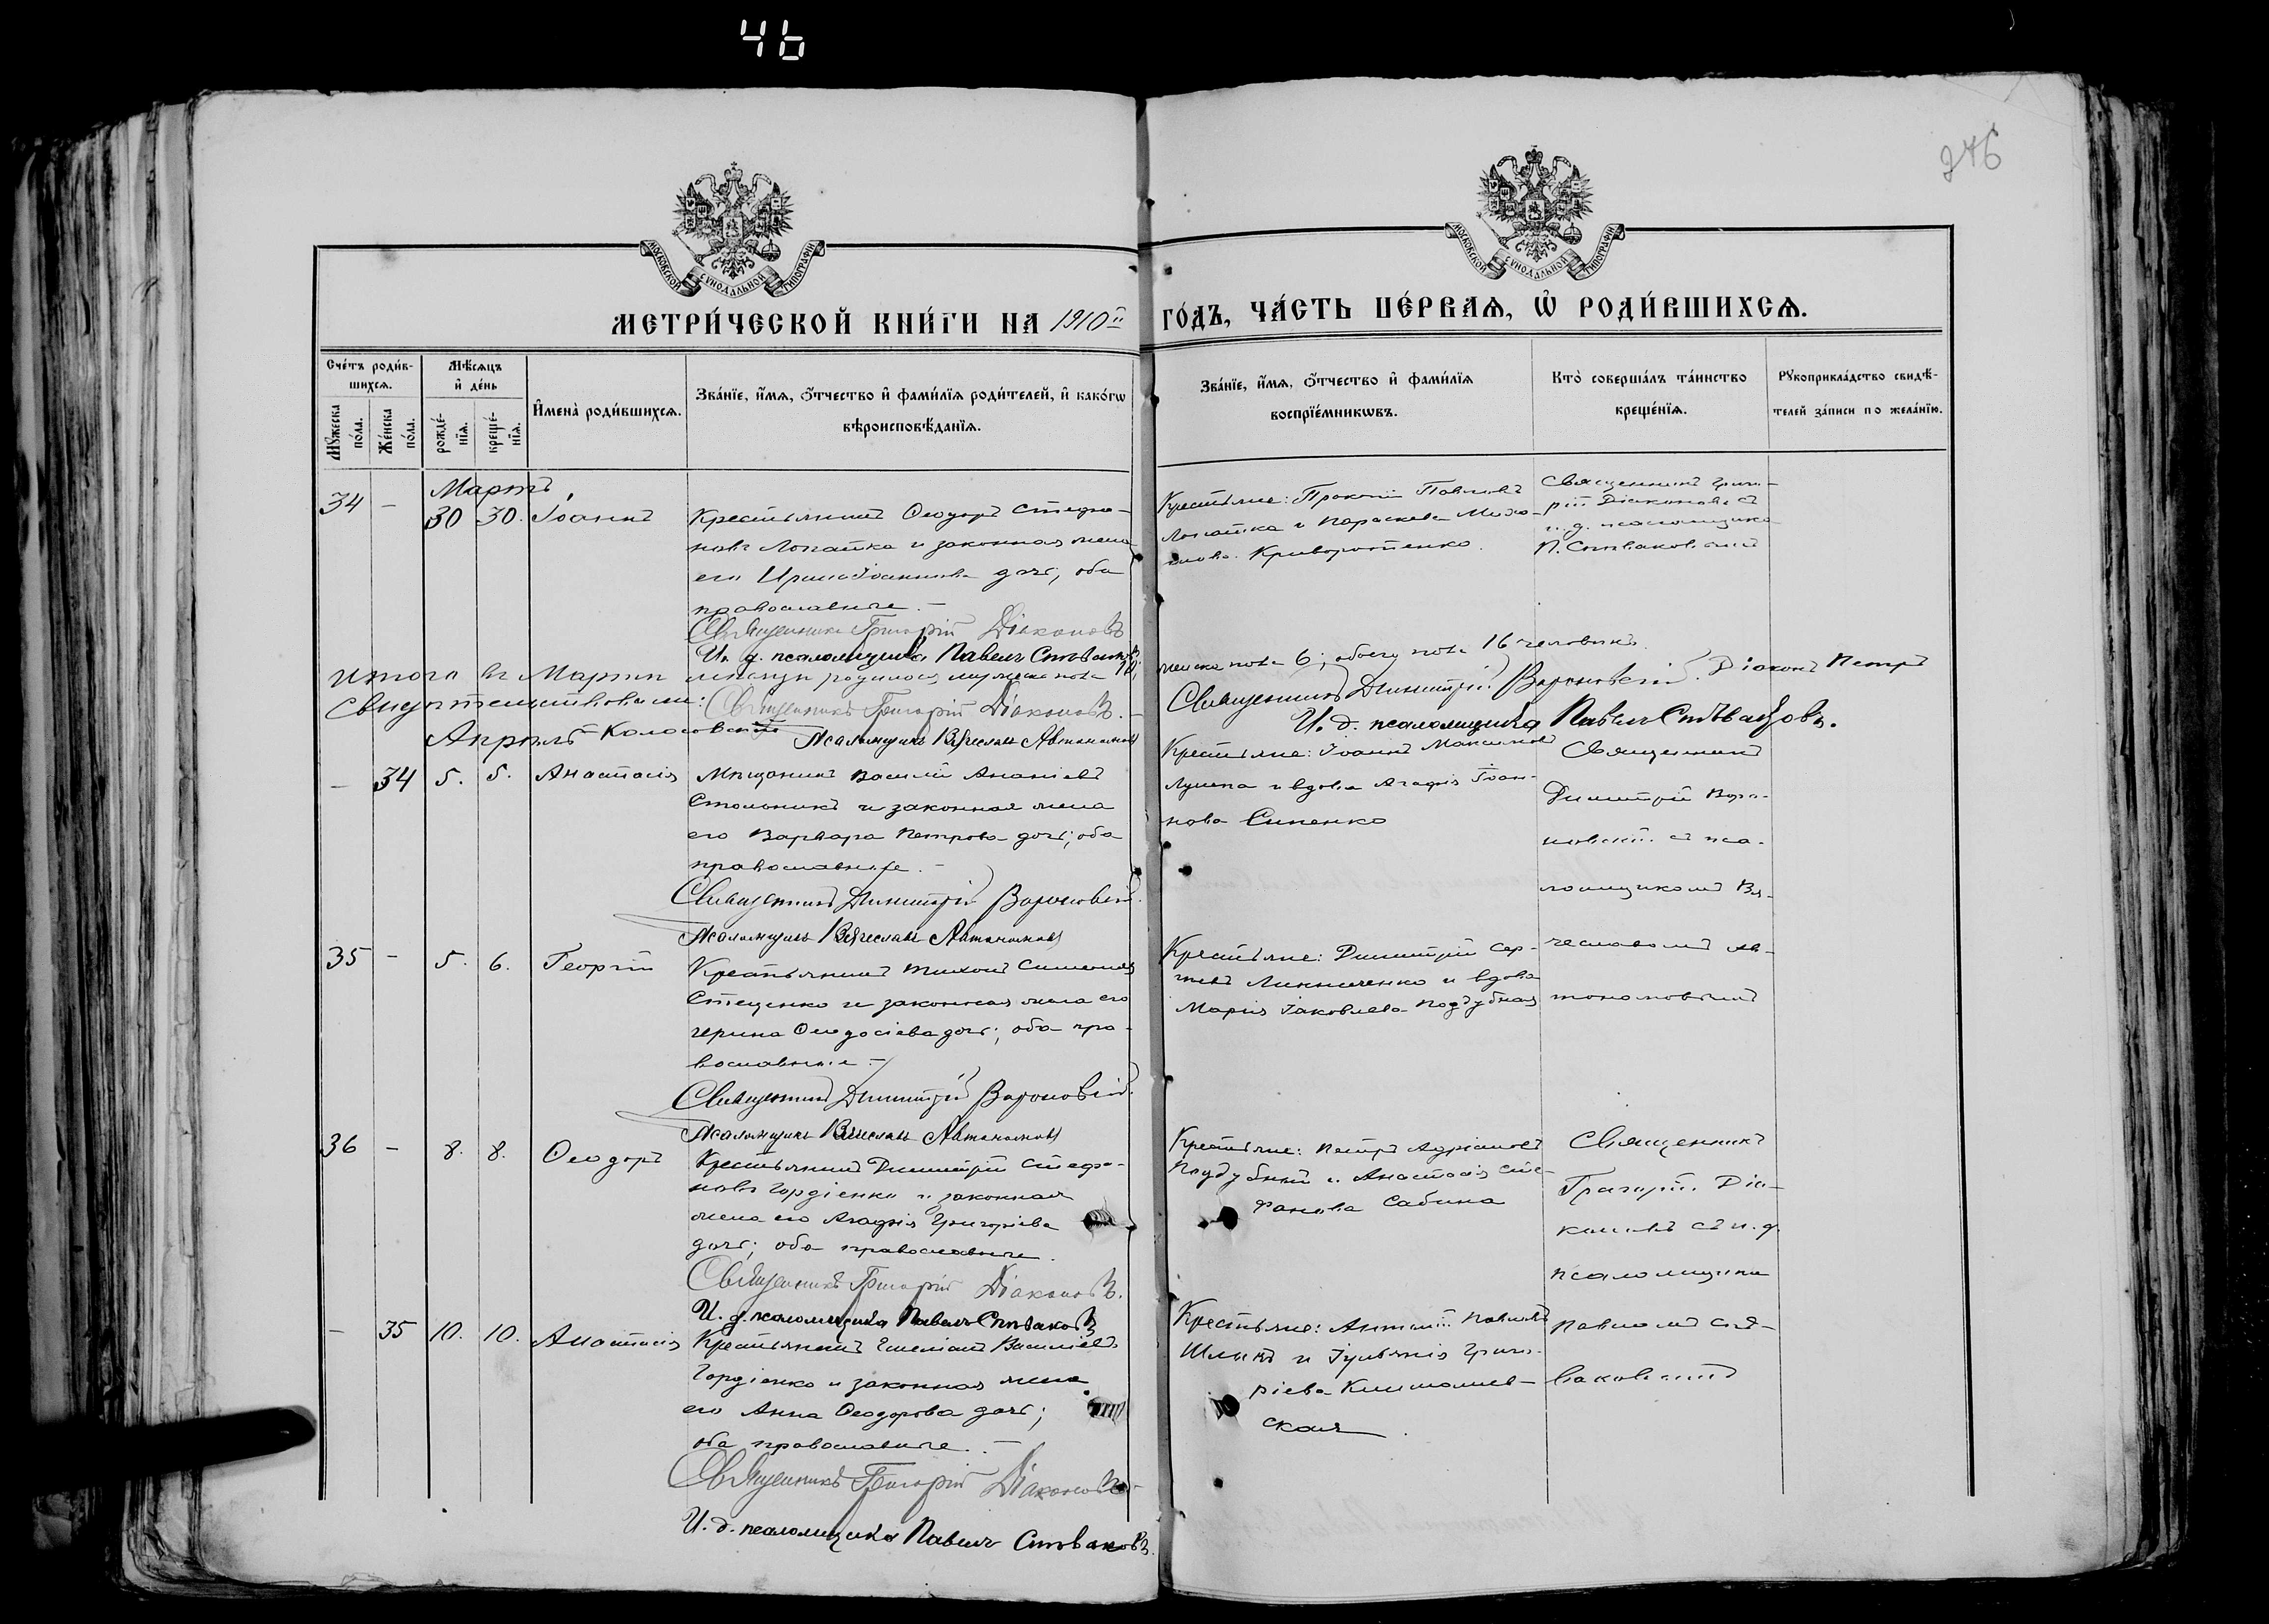 46
276
МОСКОВСКОЙ СѴНОДАЛЬНОЙ ТИПОГРАФІИ
МОСКОВСКОЙ СѴНОДАЛЬНОЙ ТИПОГРАФІИ
МЕТРИ́ЧЕСКОЙ КНИ́ГИ НА 1910й ГО́ДЪ, ЧА́СТЬ ПЕ́РВАѦ, Ѡ҆ РОДИ́ВШИХСѦ.
Сче́тъ роди́в-
шихсѧ.
Мꙋ́жеска по́ла.
Же́нска по́ла.
Мѣ́сѧцъ
и҆ де́нь
рожде́-нїѧ.
креще́-нїѧ.
И҆мена̀ роди́вшихсѧ.
Зва́нїе, и҆́мѧ, ѻ҆́тчество и҆ фами́лїѧ роди́телей, и҆ како́гѡ
вѣроисповѣ́данїѧ.
Зва́нїе, и҆́мѧ, ѻ҆́тчество и҆ фами́лїѧ
воспрїе́мникѡвъ.
Кто̀ соверша́лъ та́инство
креще́нїѧ.
Рꙋкоприкла́дство свидѣ́-
телей за́писи по жела́нїю.
Мартъ
34 - 30 30. Іоаннъ
Крестьянинъ Ѳеодоръ Стефа-
новъ Лопатка и законная жена
его Ирина Іоаннова дочь, оба
православные.-
Священникъ Григорій Діаконовъ
И. д. псаломщика Павелъ Спѣваковъ
Крестьяне: Прокопій Павловъ
Лопатка и Параскева
Криворотенко.
Священникъ Григо-
рій Діаконовъ съ
и. д. псаломщика
П. Спѣваковымъ
Итого въ Мартѣ мѣсяцѣ родилось мужеска пола 10,
женска пола 6; обоего пола 16 человѣкъ.
Свидѣтельствовали: Священникъ Григорій Діаконовъ.
Священникъ Димитрій Вороновскій. Діаконъ Петръ
Колосовскій Псаломщикъ Вячеславъ Автономовъ
И. д. псаломщика Павелъ Спѣваковъ.
Апрѣль
- 34 5. 5. Анастасія
Мѣщанинъ Василій Ананіевъ
Стольникъ и законная жена
его Варвара Петрова дочь; оба
православные.-
Священникъ Димитрій Вороновскій.
Псаломщикъ Вячеславъ Автономовъ
Крестьяне: Іоаннъ Максимовъ
и вдова Агафія Іоан-
нова Синенко
Священникъ
Димитрій Воро-
новскій съ пса-
ломщикомъ Вя-
чеславомъ Ав-
тономовымъ
35 - 5. 6. Георгій
Крестьянинъ Тихонъ Симеоновъ
Стеценко и законная жена его
Ѳеодосіева дочь; оба пра-
вославные.-
Священникъ Димитрій Вороновскій.
Псаломщикъ Вячеславъ Автономовъ
Крестьяне: Димитрій Сер-
гіевъ и вдова
Марія Іаковлева Поддубная
36 - 8. 8. Ѳеодоръ
Крестьянинъ Димитрій Стефа-
новъ Гордіенко и законная
жена его Агафія Григоріева
дочь; оба православные.
Священникъ Григорій Діаконовъ.
И. д. псаломщика Павелъ Спѣваковъ
Крестьяне: Петръ Адріановъ
Поддубный и Анастасія Сте-
фанова Сабина
Священникъ
Григорій Діа-
коновъ съ и. д.
псаломщика
Павломъ Спѣ-
ваковымъ
- 35 10. 10. Анастасія
Крестьянинъ Емеліанъ Василіевъ
Гордіенко и законная жена
его Анна Ѳеодорова дочь;
оба православные.-
Священникъ Григорій Діаконовъ
И. д. псаломщика Павелъ Спѣваковъ.
Крестьяне: Антоній Павловъ
Шлыкъ и Іуліанія Григо-
ріева
ская.